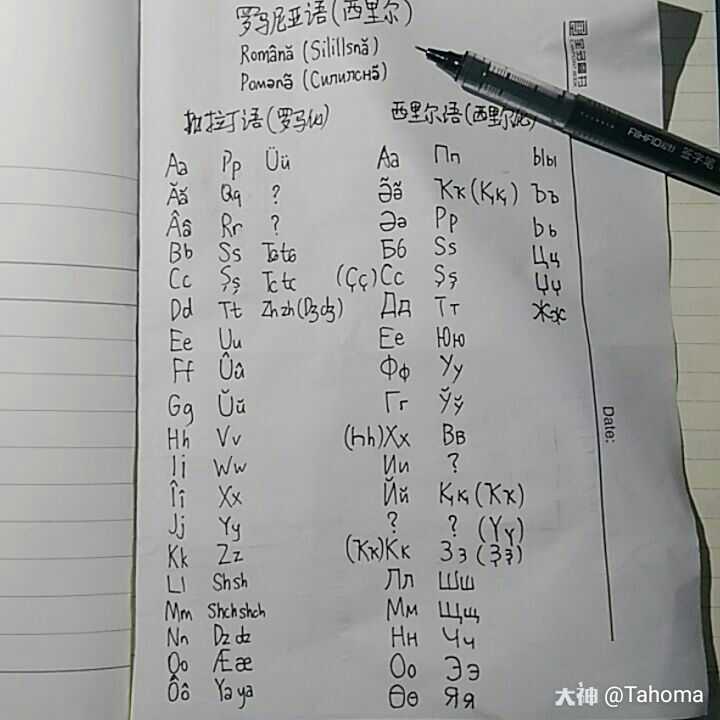 罗马尼亚语(西里尔)
Română (Silillsnă)
Ромәнӑ̃ (Силилснӑ̃)
拉丁语(罗马化) 西里尔语(西里尔化)
Aa Pp Üü Аа Пп Ыы
Ăă Qq ? Ӑ̃ӑ̃ Ҡҡ(Ққ) Ъъ
Ââ Rr ? Әә Рр Ьь
Bb Ss Tsts Бб Ѕѕ Цц
Cc Şş Tctc (Çç)Сс Şş Џџ
Dd Tt Zhzh(ʤʤ) Дд Тт Жж
Ee Uu Ее Юю
Ff Ûû Фф Уу
Gg Ŭŭ Гг Ўў
Hh Vv (Һһ)Хх Вв
Ii Ww Ии ?
Îî Xx Йй Ққ(Ҡҡ)
Jj Yy ? ? (Үү)
Kk Zz (Ҡҡ)Кк Зз(Ҙҙ)
Ll Shsh Лл Шш
Mm Shchshch Мм Щщ
Nn Dzʣ Нн Чч
Oo Ææ Оо Ээ
Ôô Yaya Өө Яя
Date:
签字笔
大神 @Tahoma